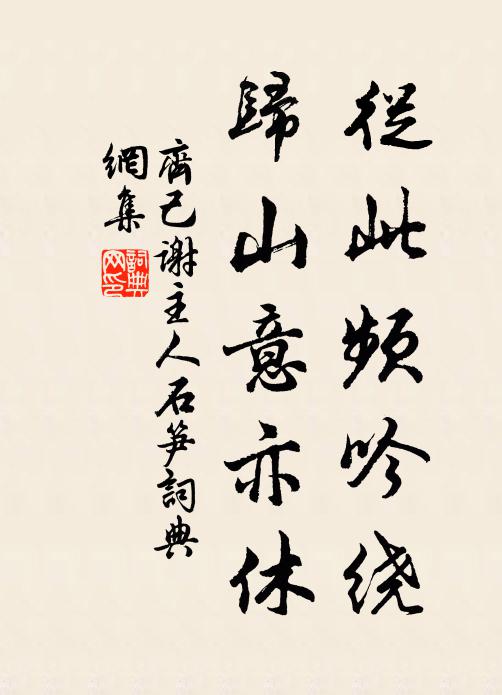 從此頻吟绕
歸山意亦休
齊己谢主人石笋詞典
網集
詞典
网印